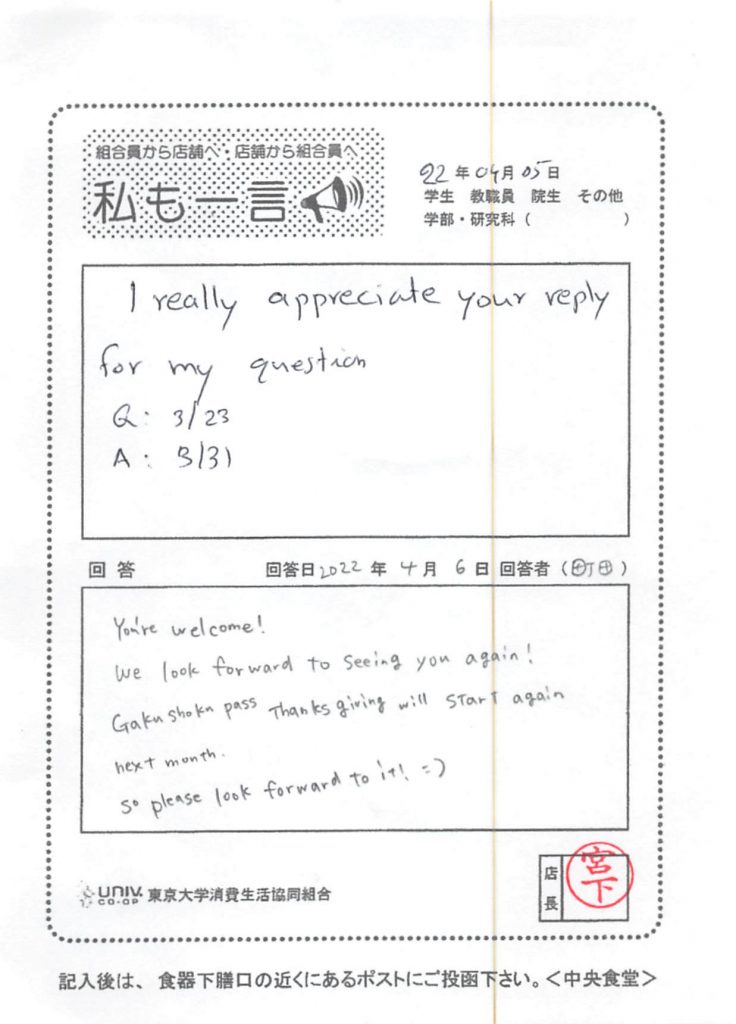 組合員から店舗へ・店舗から組合員へ
私も一言
22年04月05日
学生 教職員 院生 その他
学部・研究科（ ）
I really appreciate your reply
for my question
Q: 3/23
A: 3/31
回答 回答日2022年4月6日 回答者（町田）
You're welcome!
We look forward to seeing you again!
Gakushoku pass Thanks giving will start again
next month.
So please look forward to it! =)
UNIV. CO-OP 東京大学消費生活協同組合
店長
宮下
記入後は、食器下膳口の近くにあるポストにご投函下さい。＜中央食堂＞